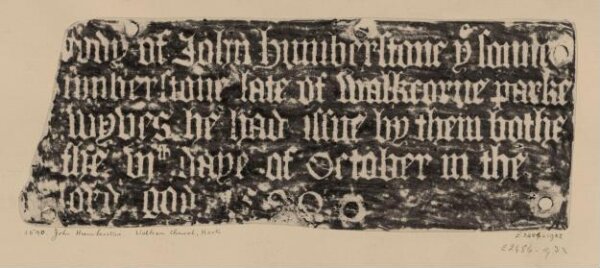 body of John humberstone yͤ sonne
humberstone late of walkcorne parke
wyves he had issue by them bothe
the vjᵗʰ daye of October in the
lord god 1590
1590. John Humberstone. Walkern Church, Herts